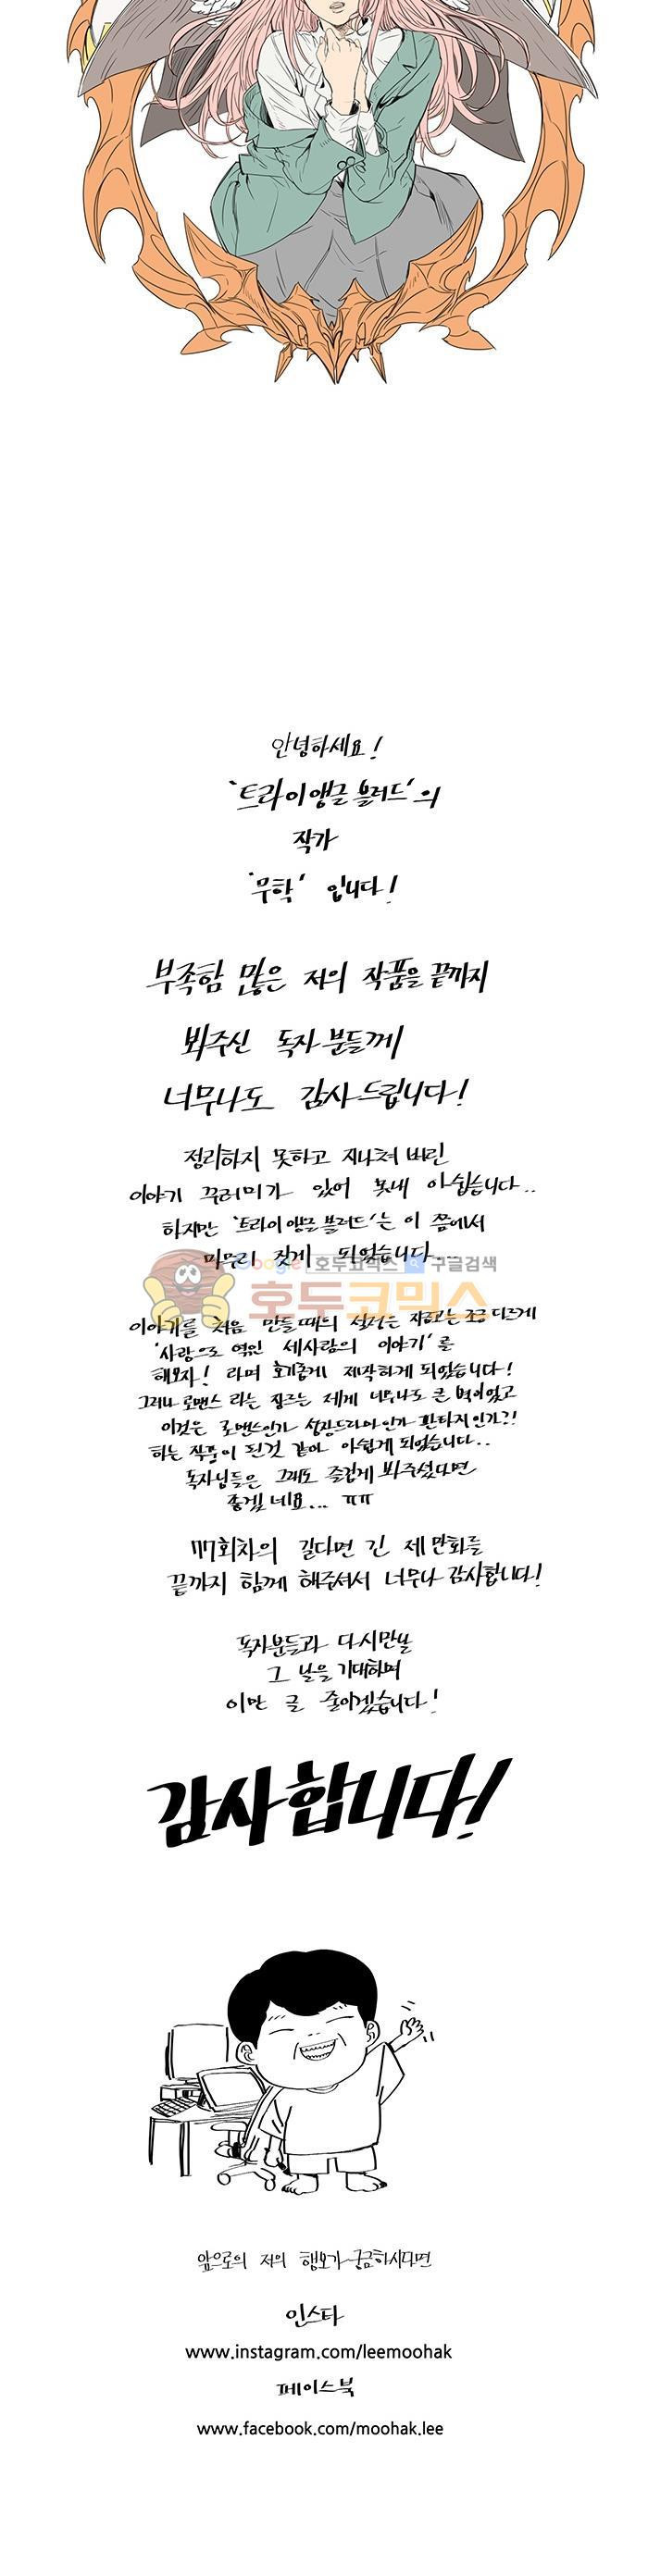 안녕하세요!
'트라이앵글 블러드'의
작가
'무학' 입니다!
부족함 많은 저의 작품을 끝까지
봐주신 독자분들께
너무나도 감사드립니다!
정리하지 못하고 지나쳐 버린
이야기 꾸러미가 있어 못내 아쉽습니다..
하지만 '트라이앵글 블러드'는 이 쯤에서
마무리 짓게 되었습니다...
Google 호두코믹스 구글검색
호두코믹스
이야기를 처음 만들 때의 설정은 지금과는 조금 다르게
'사랑으로 엮인 세사람의 이야기'를
해보자! 라며 호기롭게 제작하게 되었습니다!
그러나 로맨스 라는 장르는 제게 너무나도 큰 벽이었고
이것은 로맨스인가 성장드라마인가 판타지인가?!
하는 작품이 된것 같아 아쉽게 되었습니다..
독자님들은 그래도 즐겁게 봐주셨다면
좋겠네요... ㅠㅠ
77회차의 길다면 긴 제 만화를
끝까지 함께 해주셔서 너무나 감사합니다!
독자분들과 다시만날
그 날을 기대하며
이만 글 줄이겠습니다!
감사합니다!
앞으로의 저의 행보가 궁금하시다면
인스타
www.instagram.com/leemoohak
페이스북
www.facebook.com/moohak.lee